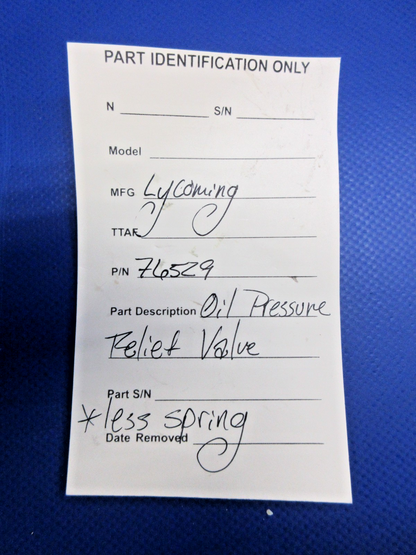 PART IDENTIFICATION ONLY
N ________ S/N ________
Model ________
MFG Lycoming
TTAF ________
P/N 76529
Part Description Oil Pressure
Relief Valve
Part S/N ________
*less spring
Date Removed ________